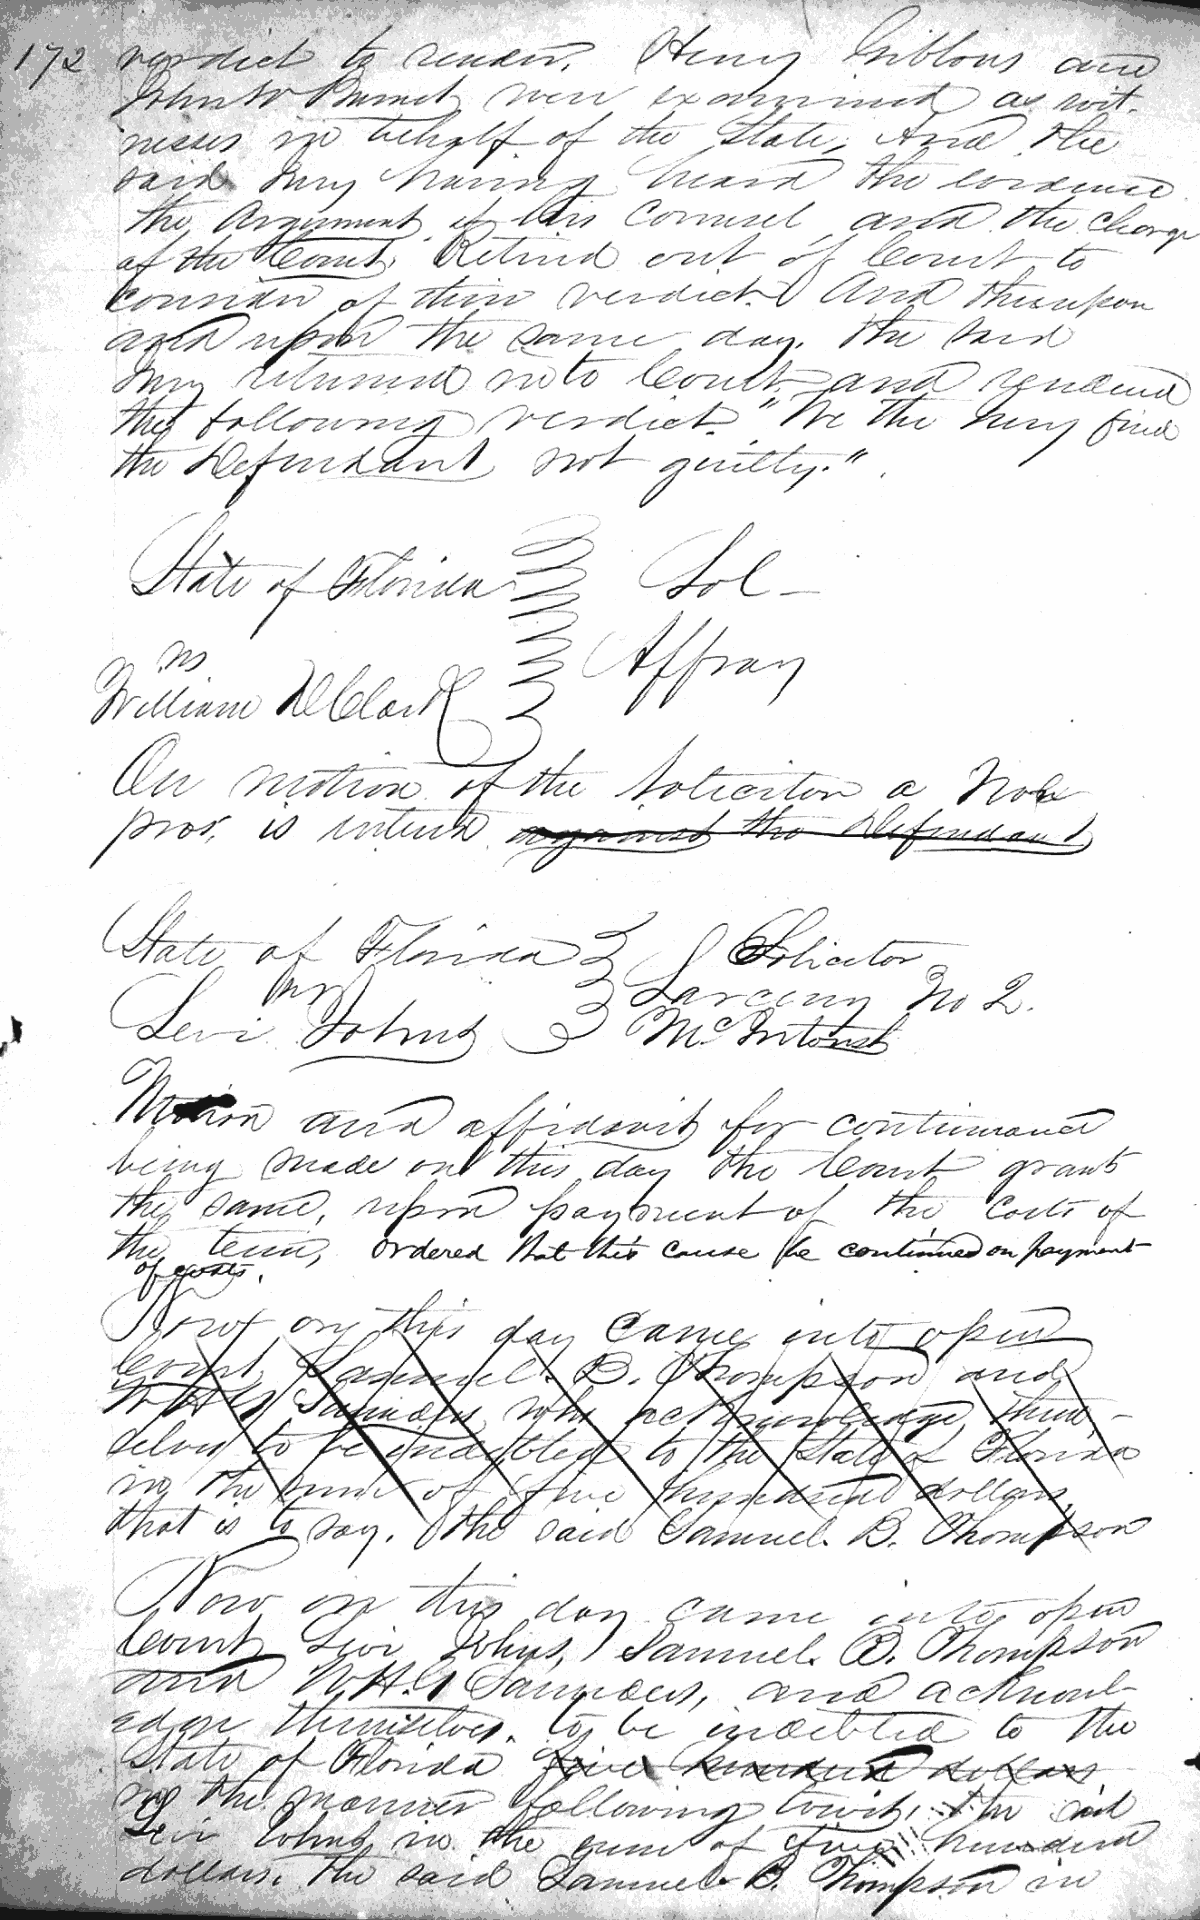 172 verdict to render. Henry Gibbons and
John W Burnet were examined as wit-
nesses in behalf of the State, And the
said Jury having heard the evidence
the Argument of his Counsel and the charge
of the Court Retired out of Court to
consider of their verdict. And thereupon
and upon the same day. the said
Jury returned into Court and rendered
the following verdict. "We the Jury find
the Defendant not guilty."
State of Florida Sol -
vs Affray
William D Clark
On motion of the Solicitor a Nole
pros. is entered against the Defendant
State of Florida Solicitor
vs Larceny No 2.
Levi Johns McIntosh
Motion and affidavit for continuance
being made on this day the Court grants
the same, upon payment of the Costs of
the term, ordered that this cause be continued on payment
of costs.
Now on this day came into open
Court Samuel. B. Thompson and
W H G Saunders who acknowledge them-
selves to be indebted to the State of Florida
in the sum of five hundred dollars
that is to say. the said Samuel. B. Thompson
Now on this day came into open
Court Levi Johns, Samuel. B. Thompson
and W.H.G Saunders, and acknowl-
edge themselves. to be indebted to the
State of Florida five hundred dollars
in the manner following towit, the said
Levi Johns in the sum of five hundred
dollars. the said Samuel B. Thompson in